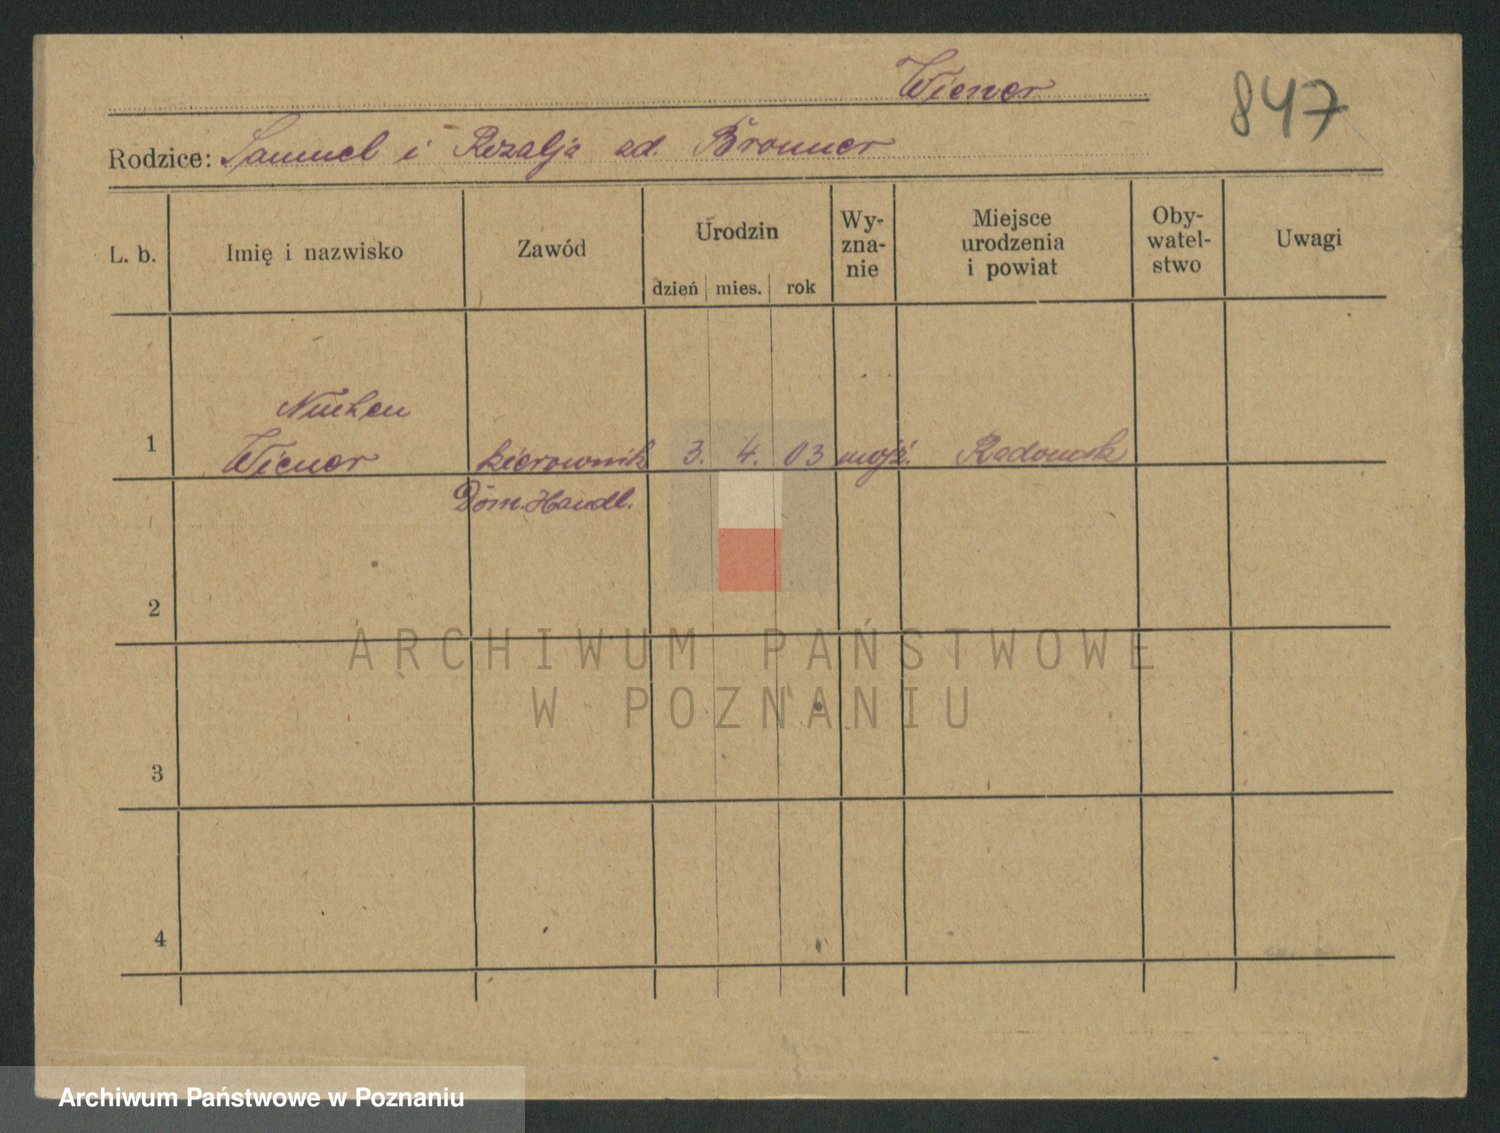 Wiener
847
Rodzice: Samuel i Rozalja zd. Bronner
L. b. Imię i nazwisko Zawód Urodzin dzień mies. rok Wy-zna-nie Miejsce urodzenia i powiat Oby-watel-stwo Uwagi
Nuchen
1 Wiener kierownik 3. 4. 03 mojż. Radomsk
Dom. Handl.
2
ARCHIWUM PAŃSTWOWE
W POZNANIU
3
4
Archiwum Państwowe w Poznaniu